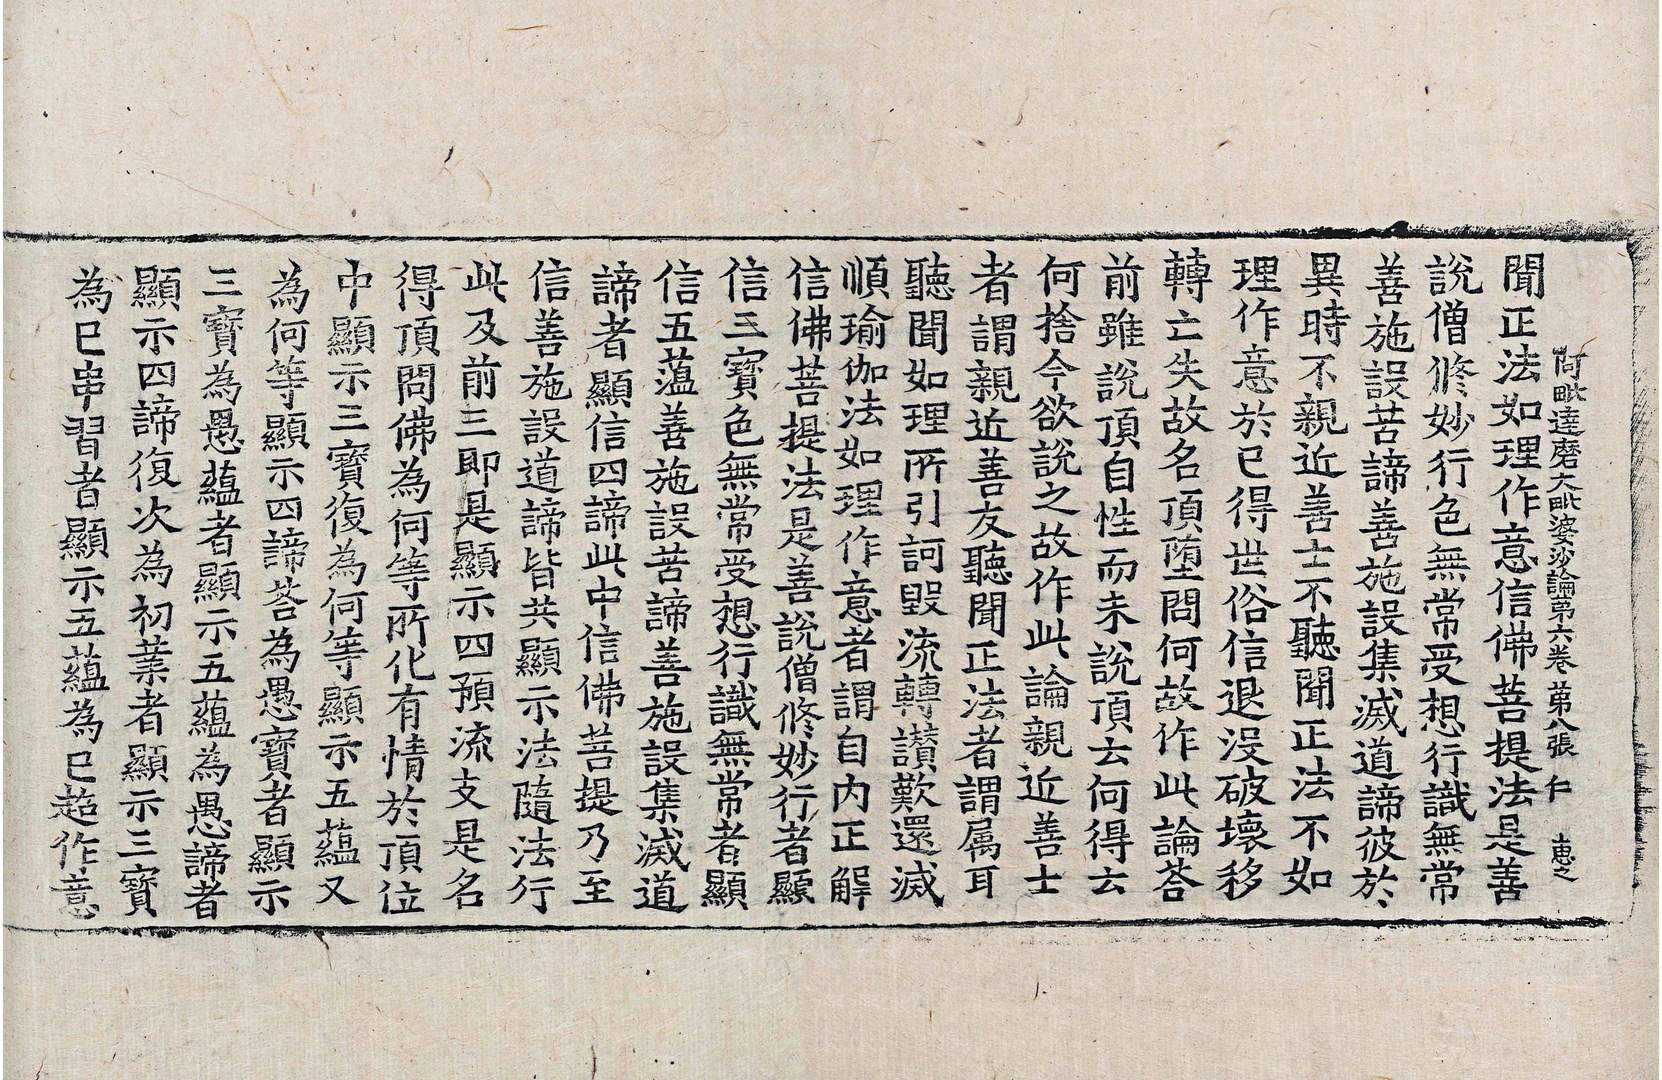 阿毗達磨大毗婆沙論第六卷 第八張 仁 惠之
聞正法如理作意信佛菩提法是善
說僧修妙行色無常受想行識無常
善施設苦諦善施設集滅道諦彼於
異時不親近善士不聽聞正法不如
理作意於已得世俗信退沒破壞移
轉亡失故名頂墮問何故作此論荅
前雖說頂自性而未說頂去何得去
何捨今欲說之故作此論親近善士
者謂親近善友聽聞正法者謂属耳
聽聞如理所引訶毀流轉讚歎還滅
順瑜伽法如理作意者謂自內正解
信佛菩提法是善說僧修妙行者顯
信三寶色無常受想行識無常者顯
信五蕰善施設苦諦善施設集滅道
諦者顯信四諦此中信佛菩提乃至
信善施設道諦皆共顯示法隨法行
此及前三即是顯示四預流支是名
得頂問佛為何等所化有情於頂位
中顯示三寶復為何等顯示五蘊又
為何等顯示四諦荅為愚寶者顯示
三寶為愚蘊者顯示五蘊為愚諦者
顯示四諦復次為初業者顯示三寶
為已串習者顯示五蘊為已超作意